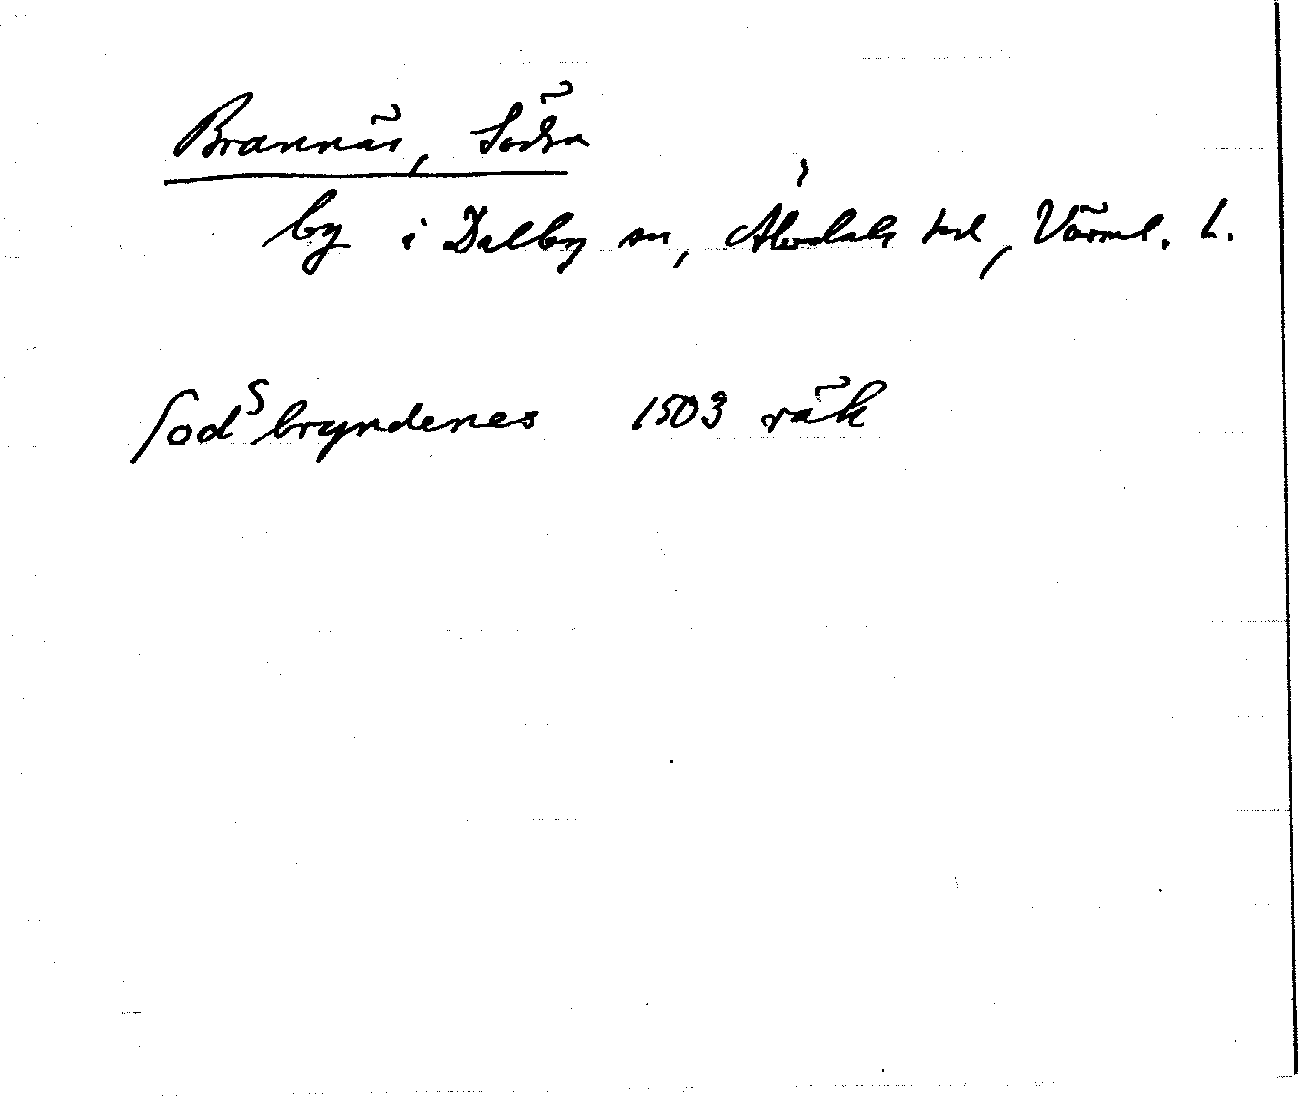 Brannäs, Södra
by i Dalby sn, Älvdals hd, Värml. L.
sodˢ bryndenes 1503 räk